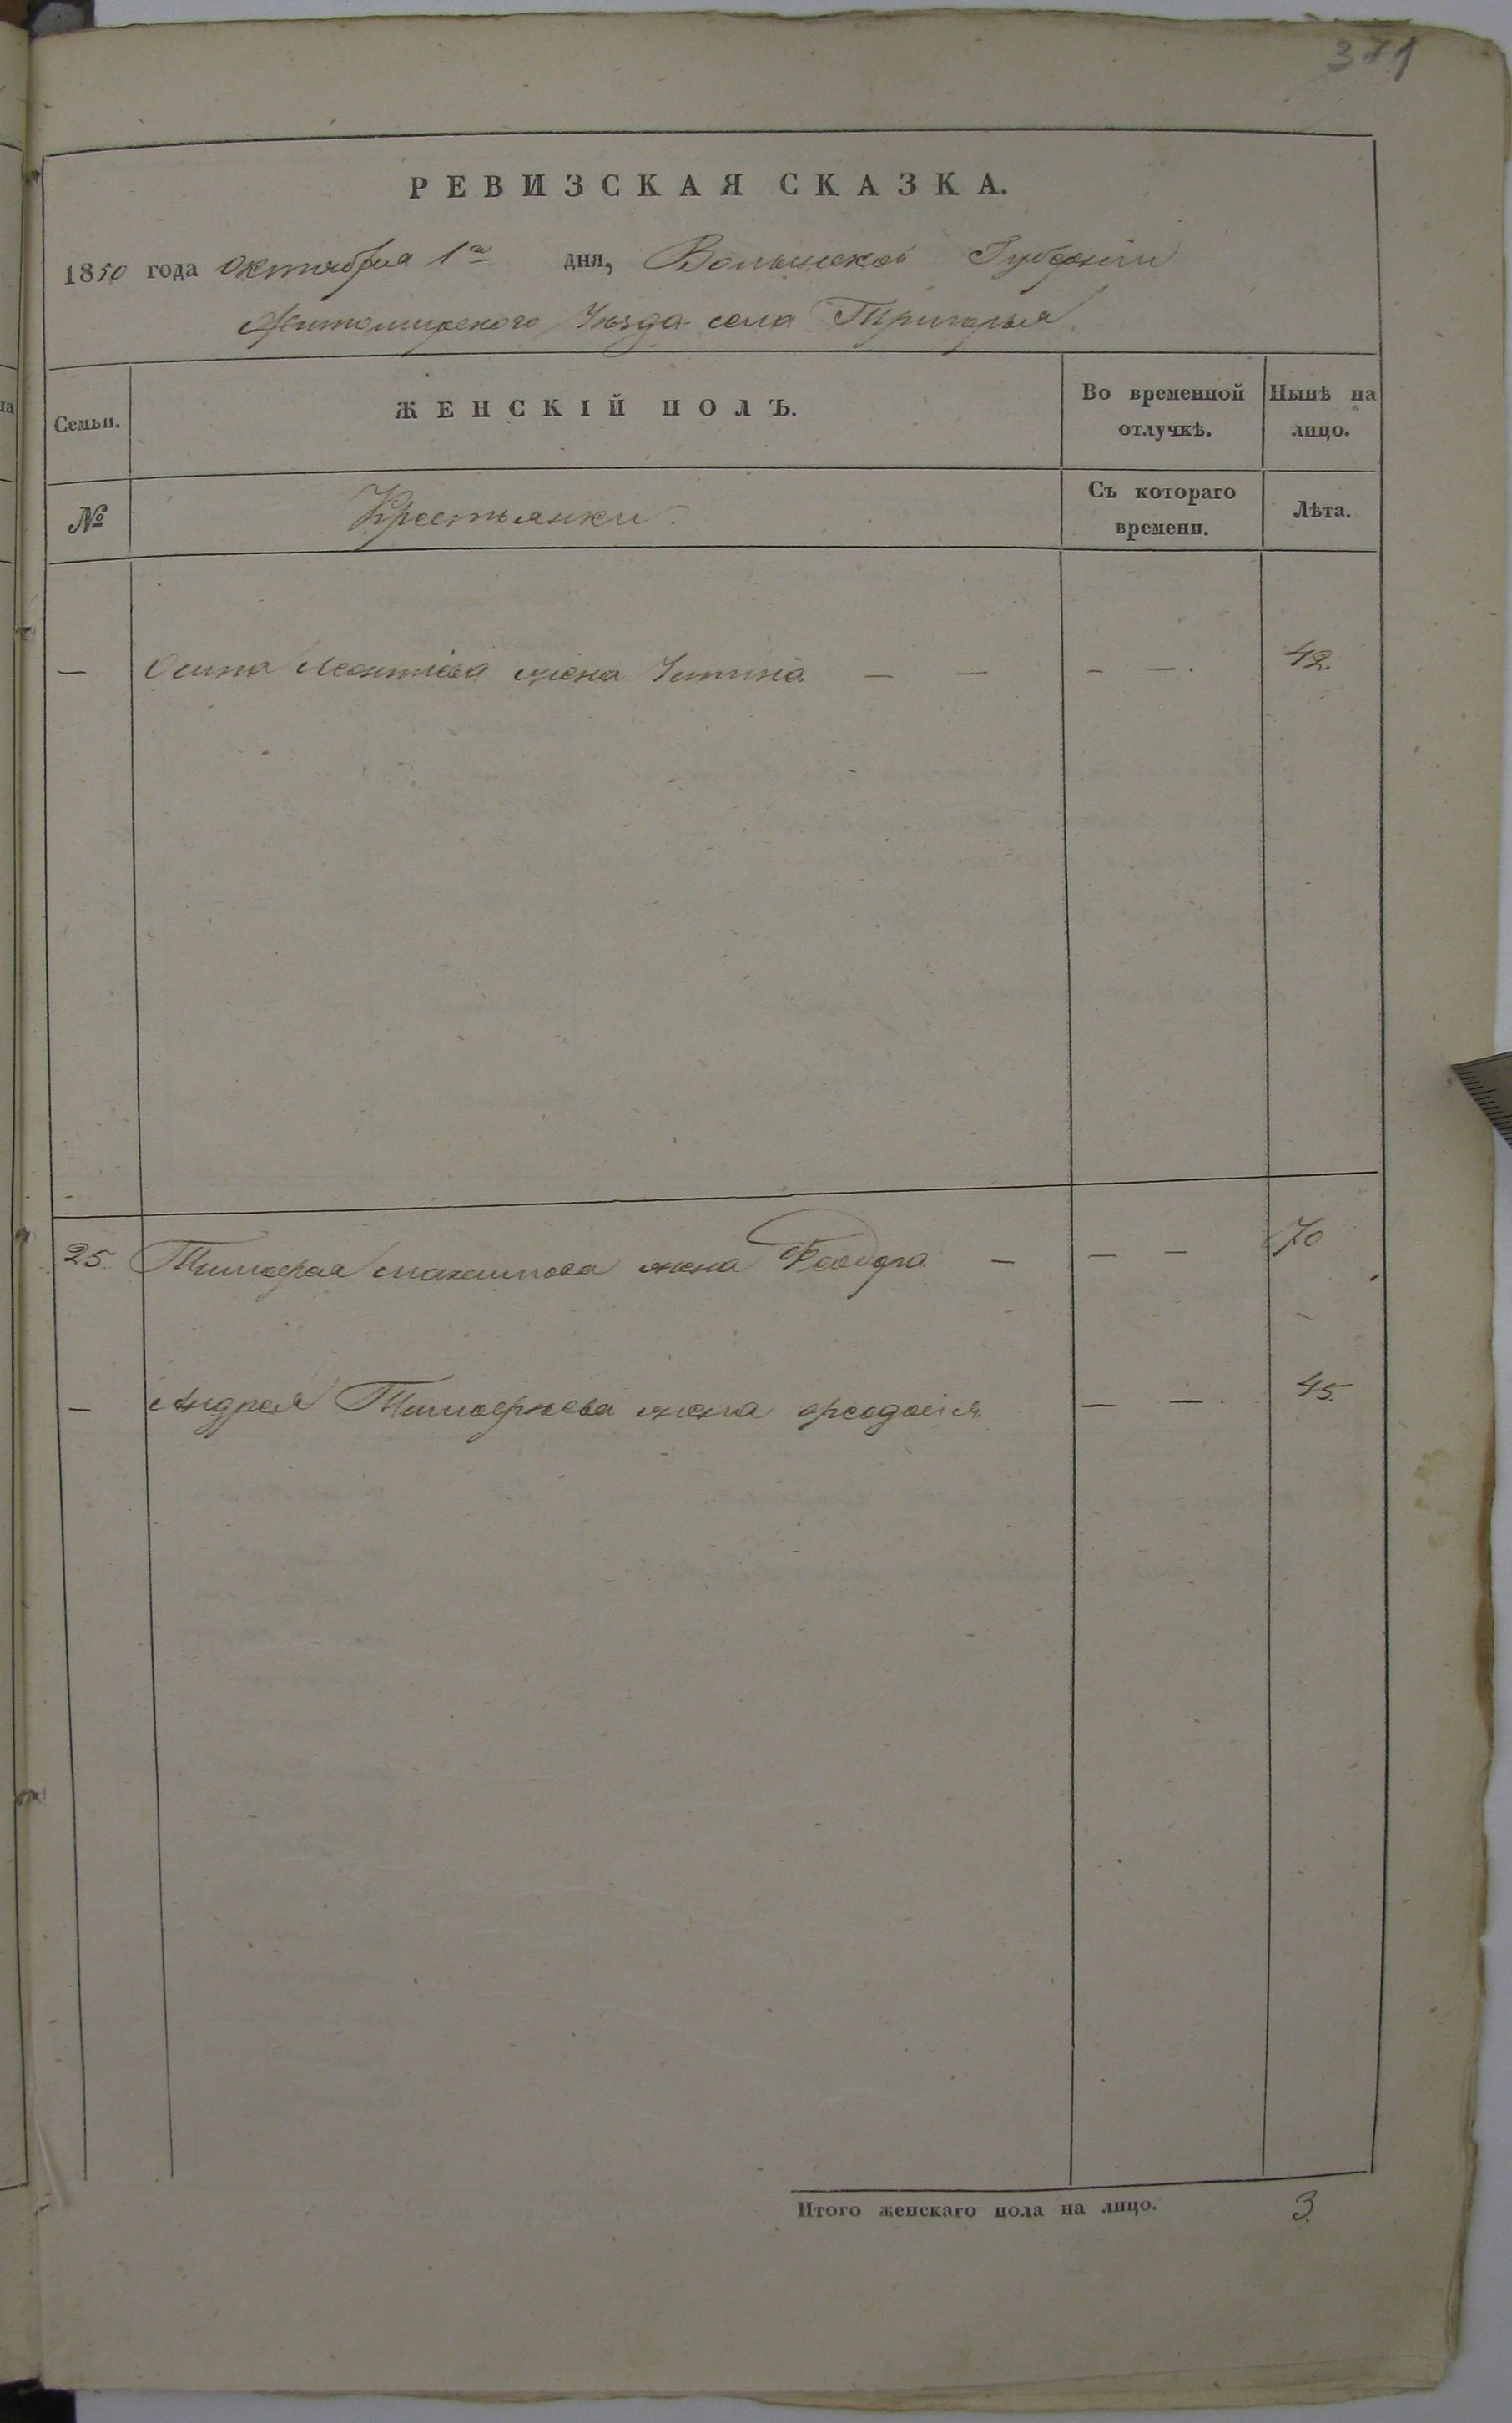 371
РЕВИЗСКАЯ СКАЗКА.
1850 года Октября 1го дня, Волынской Губерніи
Житомирскаго Уѣзда села Тригорья
Семьи. ЖЕНСКІЙ ПОЛЪ. Во временной отлучкѣ. Нынѣ на лицо.
№ Крестьянки. Съ котораго времени. Лѣта.
— Осипа Леонтіева жена Устина — — — —. 42.
25. Тимофея Максимова жена Феодора — — — 70
— Андрея Тимофеева жена Феодосія — —. 45.
Итого женскаго пола на лицо. 3.